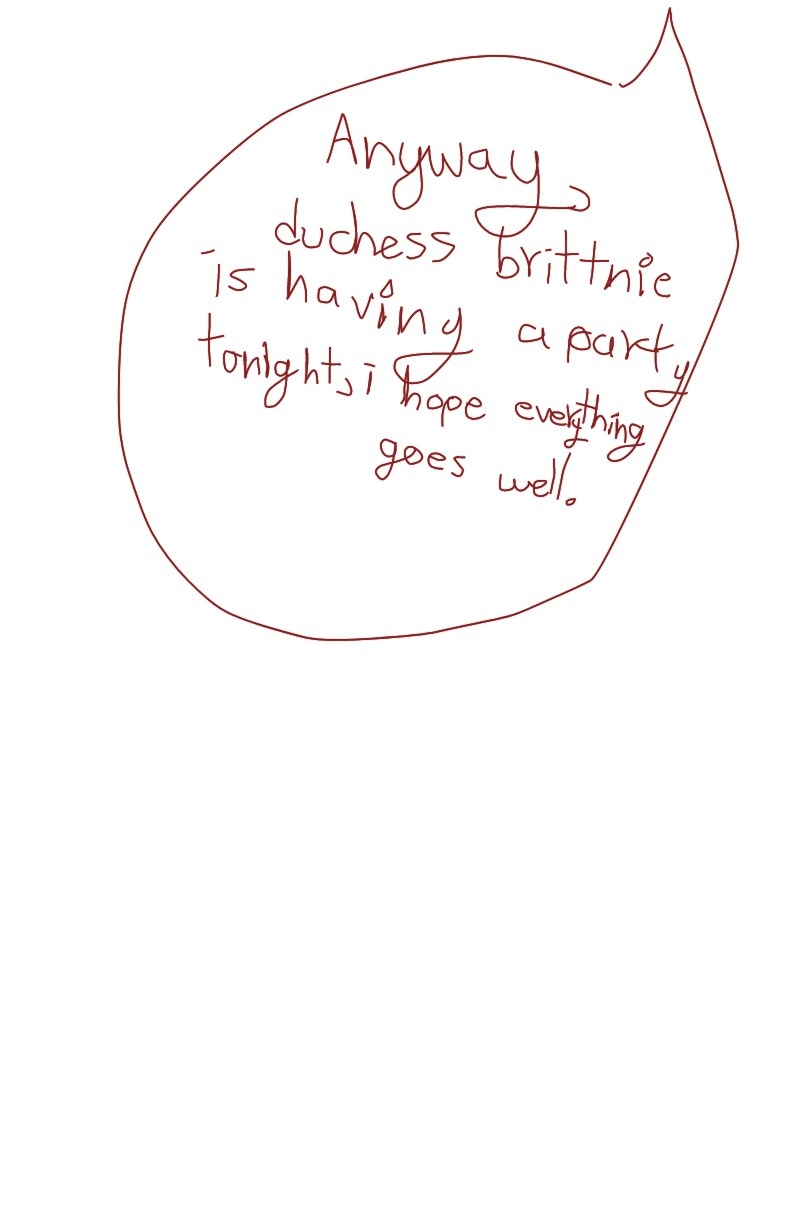 Anyway,
duchess brittnie
is having a party
tonight, i hope everything
goes well.